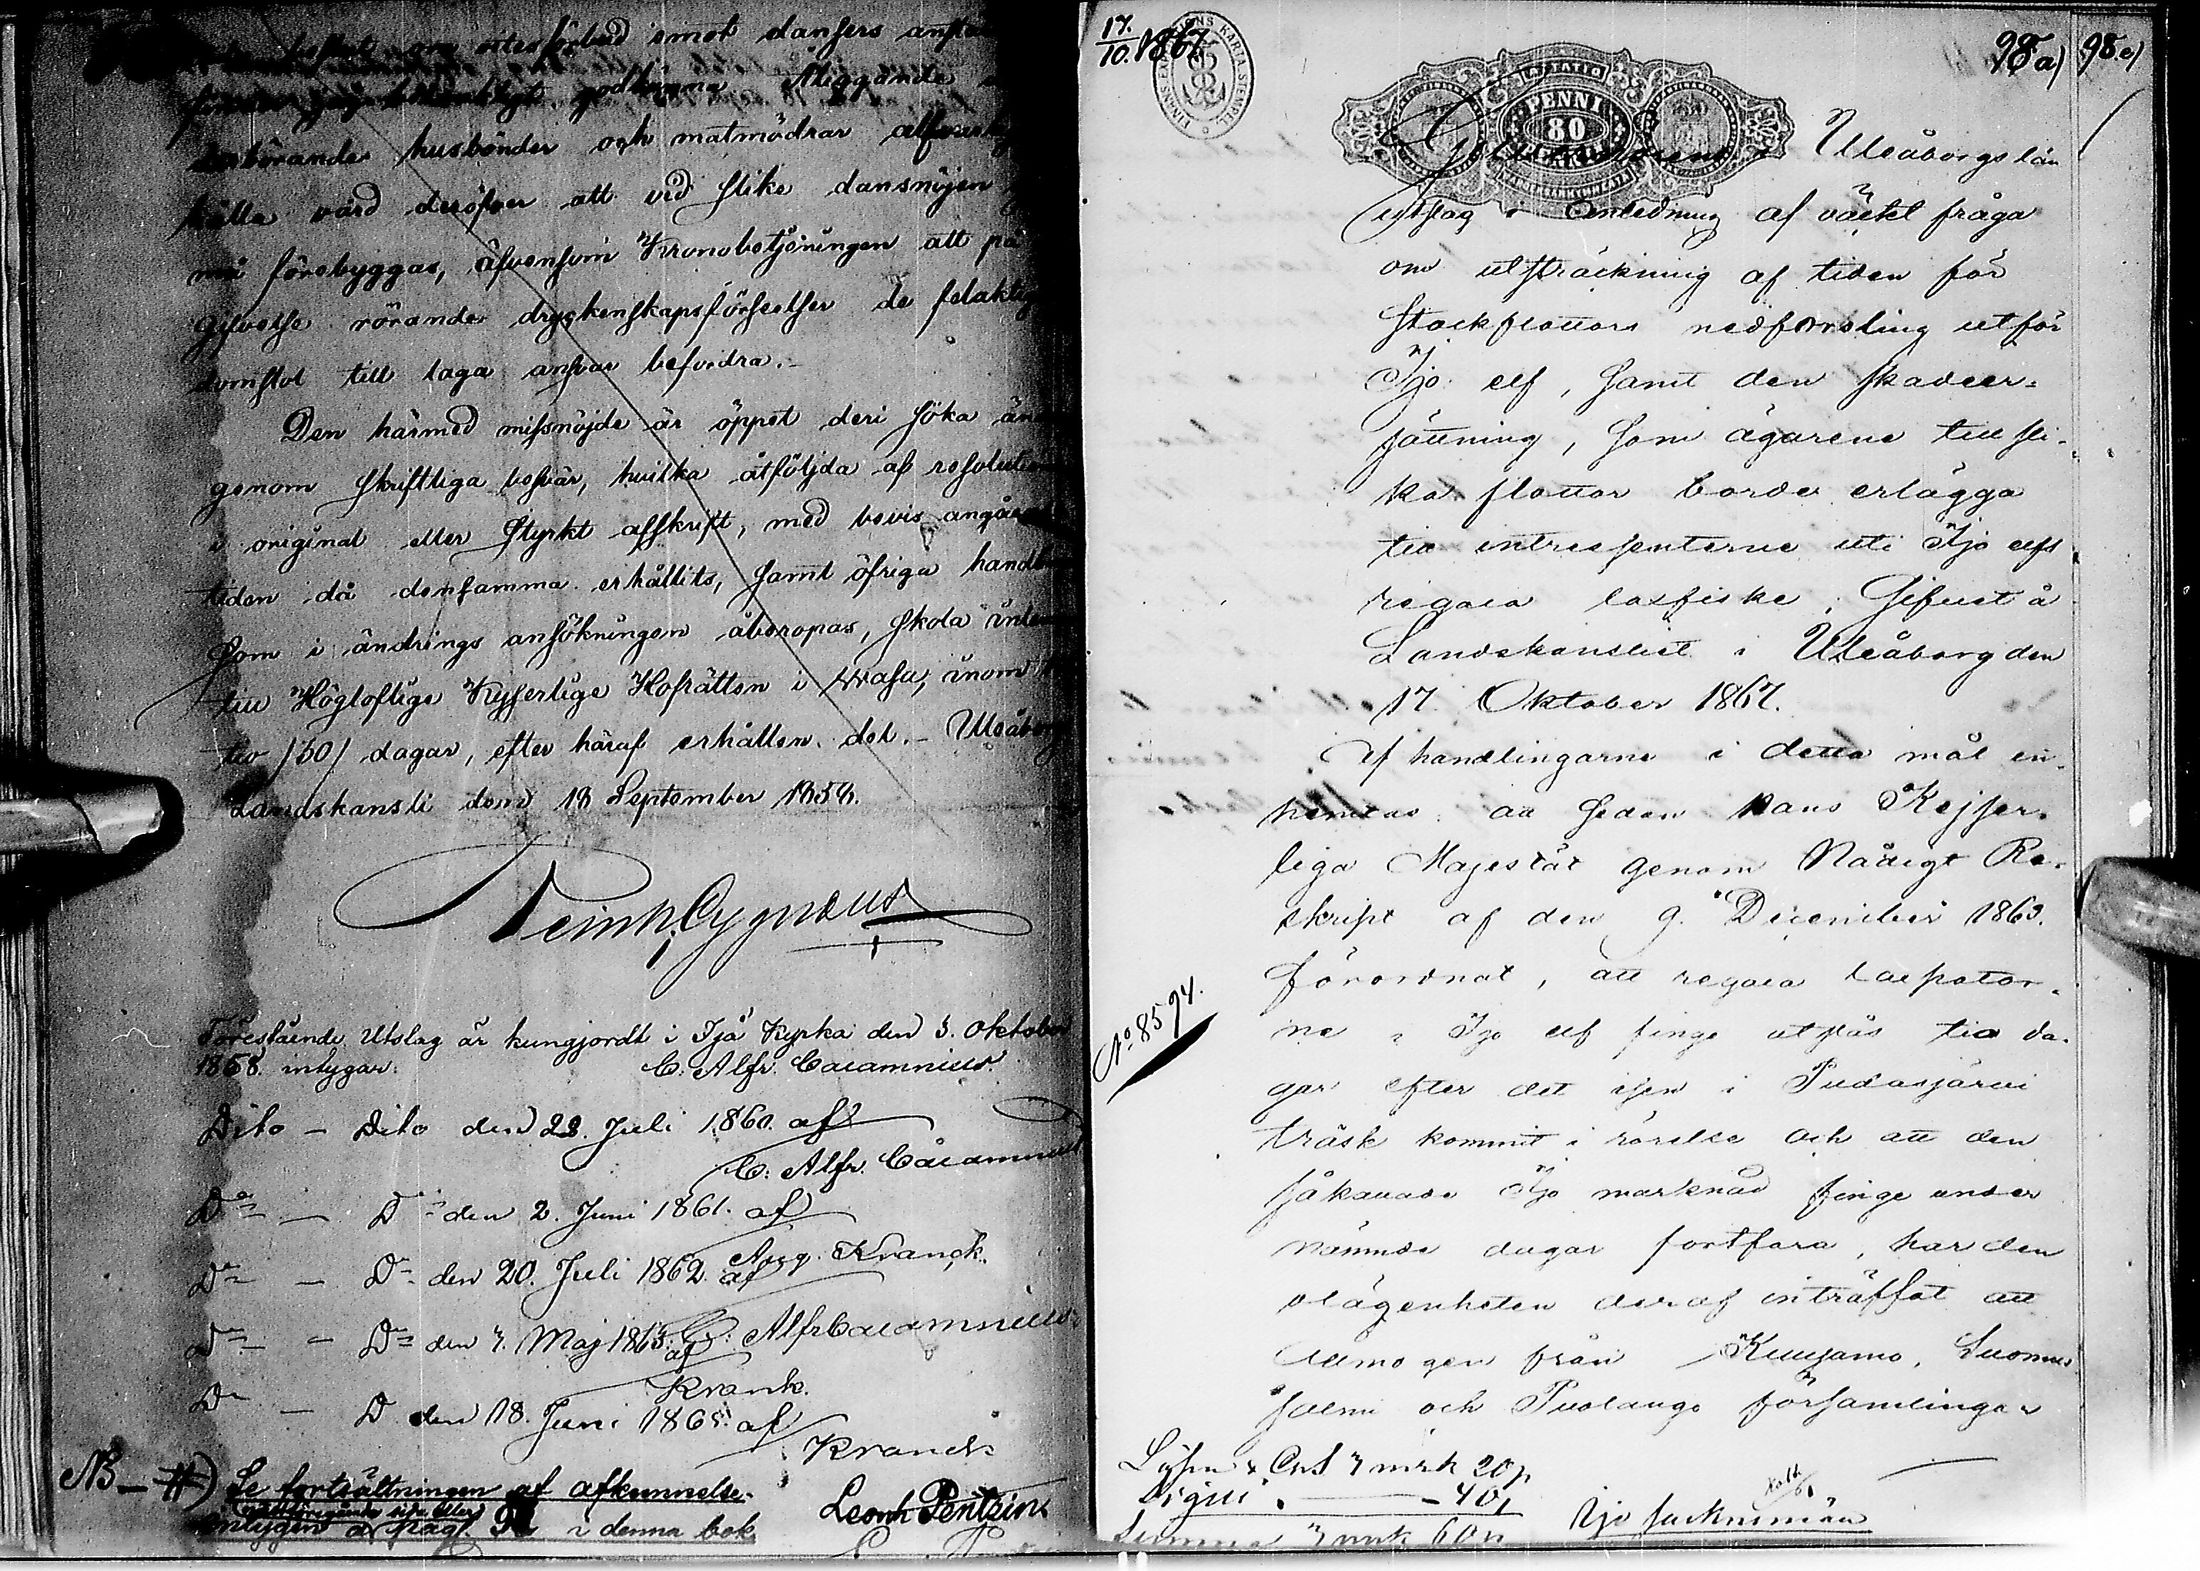 vitesförbud emot dansers
godkänna åliggande
husbönder och matmödrar
hålla vård deröfver att vid slike dansnöjen
må förebyggas, äfvensom Kronobetjeningen att på
rörande dryckenskapsförseelser de felaktig
domstol till laga ansvar befordra.-
Den härmed missnöjde är öppet deri söka än
genom skriftliga besvär, hvilka åtföljda af resolution
i original eller styrkt afskrift, med bevis angåen
tiden då densamma erhållits, samt öfriga handl
som i ändrings ansökningen åberopas, skola
till Högloflige Kejserlige Hofrätten i Wasa, inom
tio /60/ dagar, efter häraf erhållen del.- Uleåborg
Landskansli den 18 September 1858.
Förestående Utslag är kungjordt i Ijå Kyrka den 3. Oktober
1858 intygar. C: Alfr. Calamnius
Dito - Dito den 28. Juli 1860. af
C: Alfr. Calamnius
Do - Do den 2. Juni 1861. af
Aug. Kranck.
Do - Do den 20. Juli 1862. af
C: Alfr Calamnius
Do - Do den 7. Maj 1863. af
Krank.
Do - D den 18. Juni 1865. af
Kranck
NB - #) Se fortsättningen af afkunnelse-
nästföregående sida eller
intygen å pag. i denna bok
Leonh Pentzin
17/10. 1867.
98 a) 98.e)
FINANS EXPEDITIONS KARTA STEMPEL
PENNI
80
Guvernörens i Uleåborgs län
utslag i anledning af väckt fråga
om utsträckning af tiden för
stockflottors nedforsling utför
Ijo elf, samt den skadeer-
sättning, som ägarene till sli-
ka flottor borde erlägga
till intressenterne uti Ijo elfs
regala laxfiske; Gifvet å
Landskansliet i Uleåborg den
17. Oktober 1867.
Af handlingarne i detta mål in-
hemtas att sedan Hans Kejser-
liga Majestät genom Nådigt Re-
skript af den 9. December 1863.
förordnat, att regala laxpator-
ne i Ijo elf finge utslås tio da-
gar efter det isen i Pudasjärvi
träsk kommit i rörelse och att den
såkallade Ijo marknad finge under
nämnde dagar fortfara, har den
olägenheten deraf inträffat att
allmogen från Kuusamo, Suomus
salmi och Puolango församlingar
No 8594.
Lösen & Ch.S 3 mrk 20 p
Signi. - 40,
Summa 3 mrk 60 p